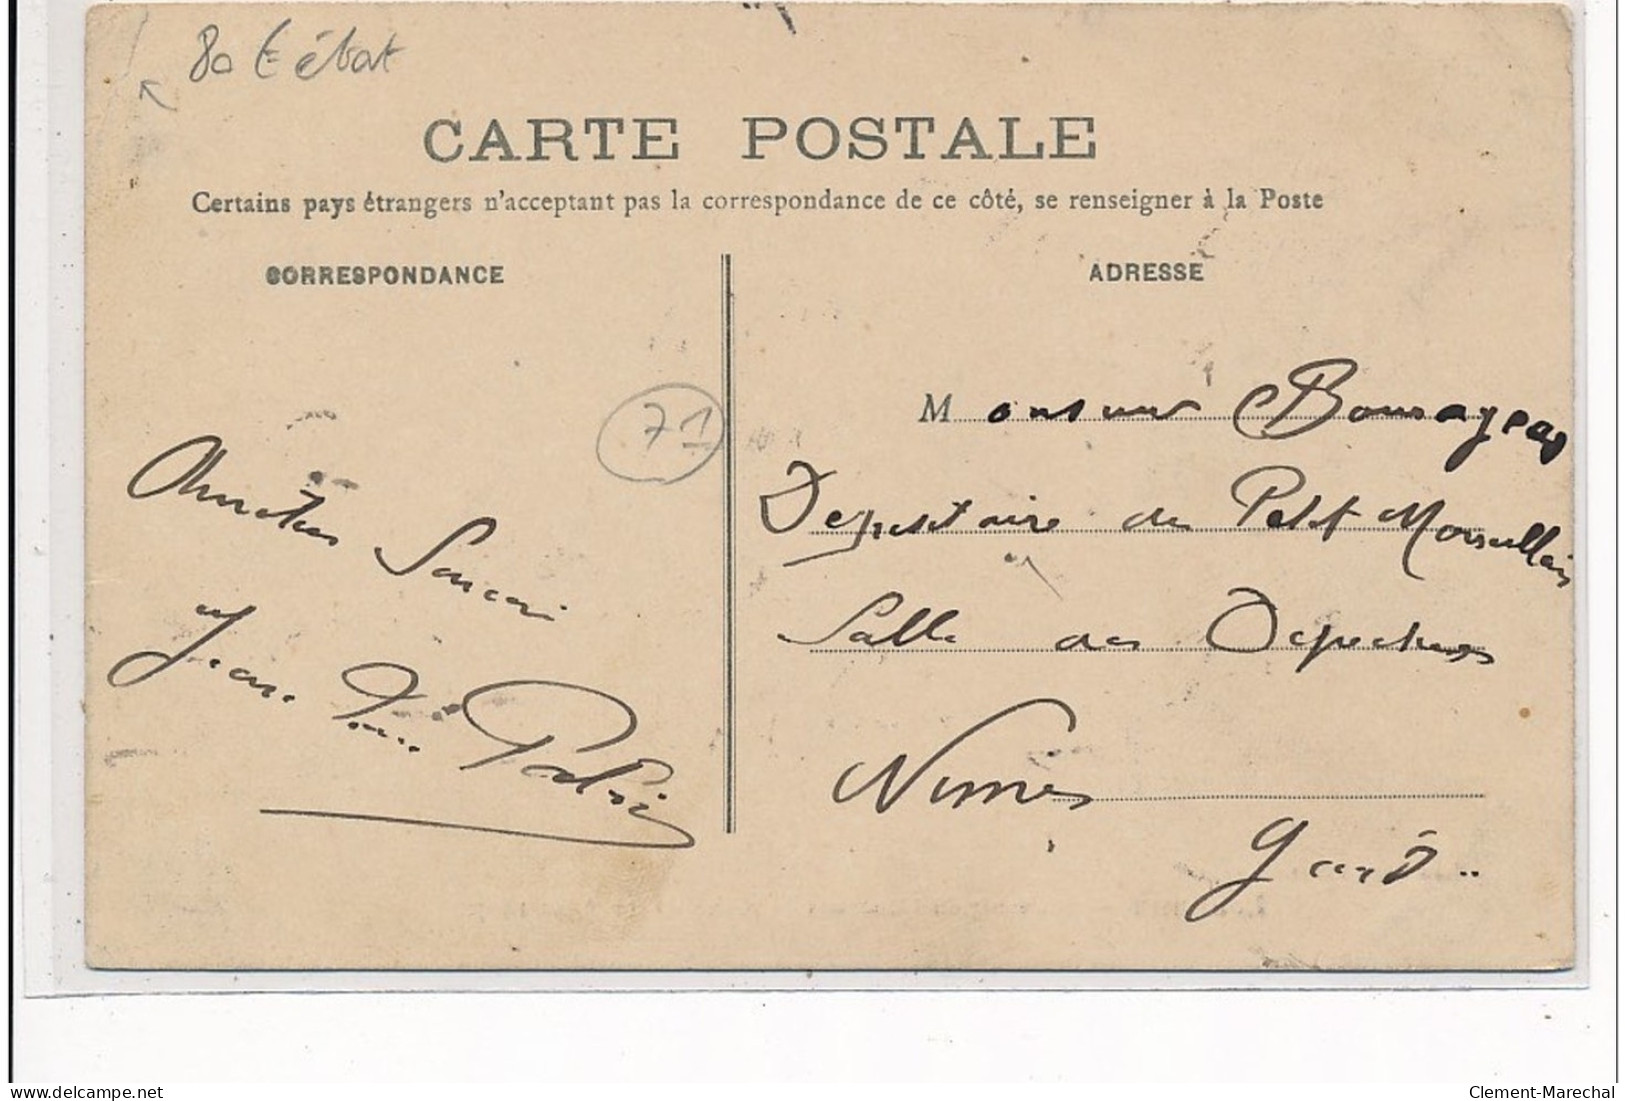 80 € état
CARTE POSTALE
Certains pays étrangers n'acceptant pas la correspondance de ce côté, se renseigner à la Poste
CORRESPONDANCE
ADRESSE
71
Monsieur
Depositaire du Petit Marseillais
Salle des Depeches
Nimes
Gard
Jean
delcampe.net
Clement-Marechal